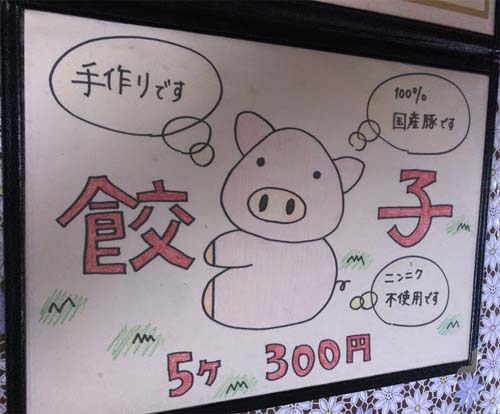 手作りです
100%
国産豚です
餃子
ニンニク
不使用です
5ヶ 300円